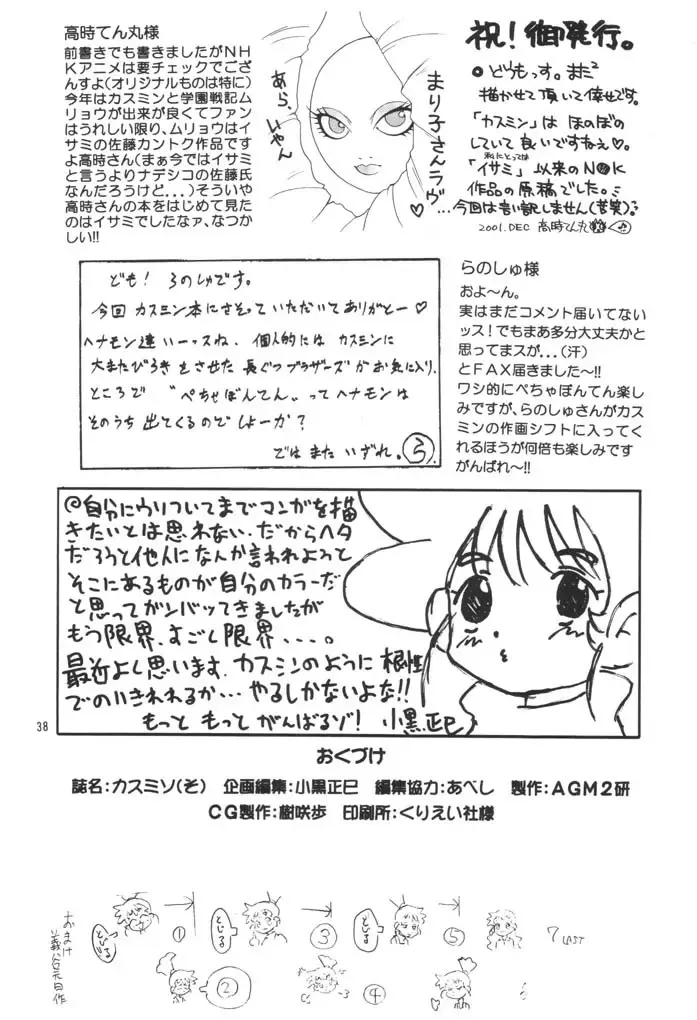 高時てん丸様
前書きでも書きましたがNH
Kアニメは要チェックでござ
んすよ(オリジナルものは特に)
今年はカスミンと学園戦記ム
リョウが出来が良くてファン
はうれしい限り、ムリョウはイ
サミの佐藤カントク作品です
よ高時さん(まぁ今ではイサミ
と言うよりナデシコの佐藤氏
なんだろうけど...)そういや
高時さんの本をはじめて見た
のはイサミでしたなァ、なつか
しい!!
あら、
いやん
まり子さんラヴ…♡
祝!御発行。
どうもっす。また2
描かせて頂いて倖せです。
「カスミン」は ほのぼの
していて良いですねぇ♡。
私にとっては
「イサミ」以来のN◎K
作品の原稿でした。
今回は言い訳しません(苦笑)
2001.DEC 高時てん丸
ども! らのしゅです。
今回 カスミン本にさそっていただいてありがとー♡
ヘナモン達いーッスね、個人的には カスミンに
大またびらき をさせた 長ぐつブラザーズがお気に入り。
ところで “ぺちゃぼんてん„ ってヘナモンは
そのうち出てくるのでしょーか?
では また いずれ。ら
らのしゅ様
およ〜ん。
実はまだコメント届いてない
ッス!でもまあ多分大丈夫かと
思ってまスが...(汗)
とFAX届きました〜!!
ワシ的にぺちゃぼんてん楽し
みですが、らのしゅさんがカス
ミンの作画シフトに入ってく
れるほうが何倍も楽しみです
がんばれ〜!!
@自分にウソついてまでマンガを描
きたいとは思わない。だからヘタ
だろうと他人になんか言われようと
そこにあるものが自分のカラーだ
と思ってガンバッてきましたが
もう限界、すごし限界、、、。
最近よく思います、カスミンのように根性
でのりきれれるか… やるしかないよな!!
もっと もっと がんばるゾ! 小黒正巳
38
おくづけ
誌名:カスミソ(そ) 企画編集:小黒正巳 編集協力:あべし 製作:AGM2研
CG製作:樹咲歩 印刷所:くりえい社様
おまけ
とじる
①
とじる
③
とじる
⑤
7 LAST
②
④